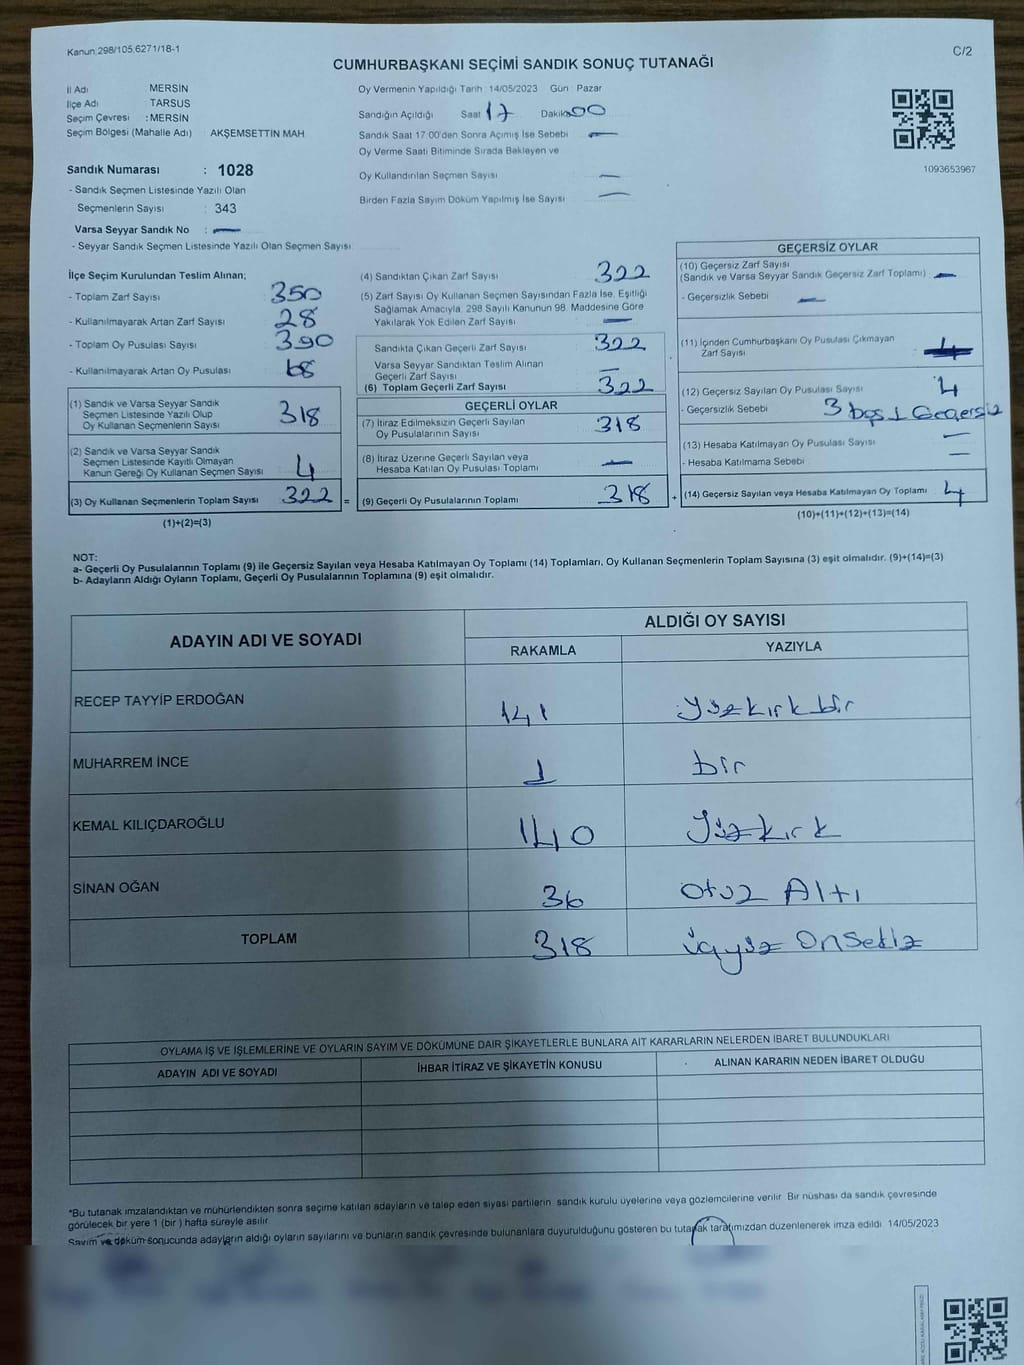 Kanun:298/105,6271/18-1
C/2
CUMHURBAŞKANI SEÇİMİ SANDIK SONUÇ TUTANAĞI
İl Adı MERSİN
İlçe Adı TARSUS
Seçim Çevresi : MERSİN
Seçim Bölgesi (Mahalle Adı) : AKŞEMSETTİN MAH
Oy Vermenin Yapıldığı Tarih : 14/05/2023 Gün : Pazar
Sandığın Açıldığı Saat 17 Dakika 00
Sandık Saat 17:00'den Sonra Açımış İse Sebebi —
Oy Verme Saati Bitiminde Sırada Bekleyen ve
Oy Kullandırılan Seçmen Sayısı —
Birden Fazla Sayım Döküm Yapılmış İse Sayısı —
1093653967
Sandık Numarası : 1028
- Sandık Seçmen Listesinde Yazılı Olan
Seçmenlerin Sayısı : 343
Varsa Seyyar Sandık No : —
- Seyyar Sandık Seçmen Listesinde Yazılı Olan Seçmen Sayısı
İlçe Seçim Kurulundan Teslim Alınan;
- Toplam Zarf Sayısı 350
- Kullanılmayarak Artan Zarf Sayısı 28
- Toplam Oy Pusulası Sayısı 390
- Kullanılmayarak Artan Oy Pusulası 68
(1) Sandık ve Varsa Seyyar Sandık
Seçmen Listesinde Yazılı Olup
Oy Kullanan Seçmenlerin Sayısı 318
(2) Sandık ve Varsa Seyyar Sandık
Seçmen Listesinde Kayıtlı Olmayan
Kanun Gereği Oy Kullanan Seçmen Sayısı 4
(3) Oy Kullanan Seçmenlerin Toplam Sayısı 322 =
(1)+(2)=(3)
(4) Sandıktan Çıkan Zarf Sayısı 322
(5) Zarf Sayısı Oy Kullanan Seçmen Sayısından Fazla İse, Eşitliği
Sağlamak Amacıyla; 298 Sayılı Kanunun 98. Maddesine Göre
Yakılarak Yok Edilen Zarf Sayısı —
Sandıkta Çıkan Geçerli Zarf Sayısı 322
Varsa Seyyar Sandıktan Teslim Alınan
Geçerli Zarf Sayısı —
(6) Toplam Geçerli Zarf Sayısı 322
GEÇERLİ OYLAR
(7) İtiraz Edilmeksizin Geçerli Sayılan
Oy Pusulalarının Sayısı 318
(8) İtiraz Üzerine Geçerli Sayılan veya
Hesaba Katılan Oy Pusulası Toplamı —
(9) Geçerli Oy Pusulalarının Toplamı 318 +
GEÇERSİZ OYLAR
(10) Geçersiz Zarf Sayısı
(Sandık ve Varsa Seyyar Sandık Geçersiz Zarf Toplamı) —
- Geçersizlik Sebebi —
(11) İçinden Cumhurbaşkanı Oy Pusulası Çıkmayan
Zarf Sayısı
(12) Geçersiz Sayılan Oy Pusulası Sayısı 4
- Geçersizlik Sebebi 3 boş 1 Geçersiz
(13) Hesaba Katılmayan Oy Pusulası Sayısı —
- Hesaba Katılmama Sebebi —
(14) Geçersiz Sayılan veya Hesaba Katılmayan Oy Toplamı 4
(10)+(11)+(12)+(13)=(14)
NOT:
a- Geçerli Oy Pusulalarının Toplamı (9) ile Geçersiz Sayılan veya Hesaba Katılmayan Oy Toplamı (14) Toplamları, Oy Kullanan Seçmenlerin Toplam Sayısına (3) eşit olmalıdır. (9)+(14)=(3)
b- Adayların Aldığı Oyların Toplamı, Geçerli Oy Pusulalarının Toplamına (9) eşit olmalıdır.
ADAYIN ADI VE SOYADI
ALDIĞI OY SAYISI
RAKAMLA YAZIYLA
RECEP TAYYİP ERDOĞAN 141 yüzkırkbir
MUHARREM İNCE 1 bir
KEMAL KILIÇDAROĞLU 140 Yüzkırk
SİNAN OĞAN 36 otuz Altı
TOPLAM 318 üçyüz Onsekiz
OYLAMA İŞ VE İŞLEMLERİNE VE OYLARIN SAYIM VE DÖKÜMÜNE DAİR ŞİKAYETLERLE BUNLARA AİT KARARLARIN NELERDEN İBARET BULUNDUKLARI
ADAYIN ADI VE SOYADI İHBAR İTİRAZ VE ŞİKAYETİN KONUSU ALINAN KARARIN NEDEN İBARET OLDUĞU
*Bu tutanak imzalandıktan ve mühürlendikten sonra seçime katılan adayların ve talep eden siyasi partilerin sandık kurulu üyelerine veya gözlemcilerine verilir. Bir nüshası da sandık çevresinde
görülecek bir yere 1 (bir) hafta süreyle asılır.
Sayım ve döküm sonucunda adayların aldığı oyların sayılarını ve bunların sandık çevresinde bulunanlara duyurulduğunu gösteren bu tutanak tarafımızdan düzenlenerek imza edildi. 14/05/2023